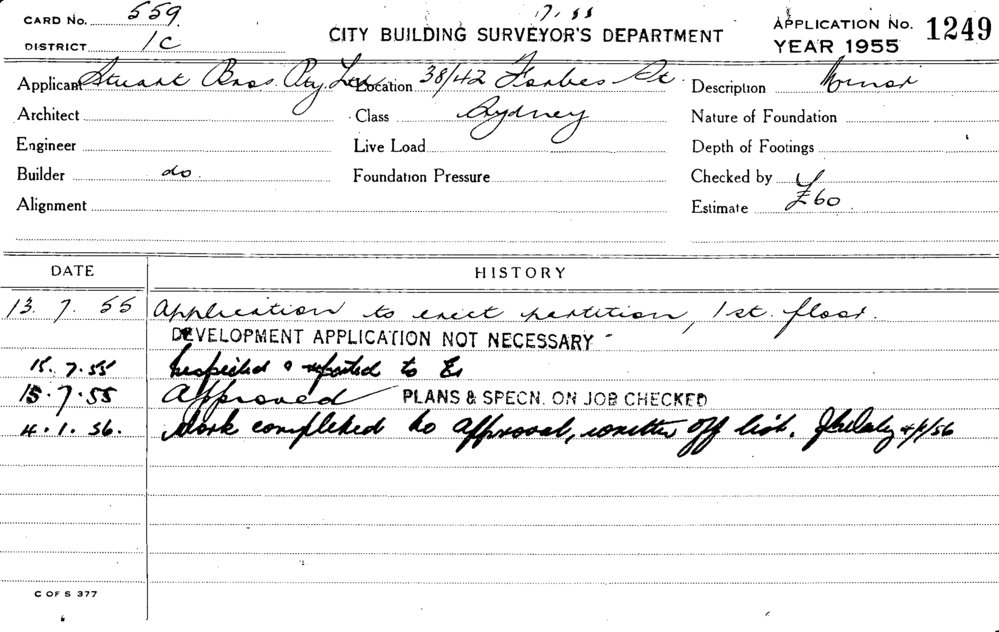 CARD No. 559 7.55 APPLICATION No. 1249
DISTRICT 1C CITY BUILDING SURVEYOR'S DEPARTMENT YEAR 1955
Applicant Stuart Bros. Pty. Ltd. Location 38/42 Forbes St. Description Minor
Architect Class Sydney Nature of Foundation
Engineer Live Load Depth of Footings
Builder do. Foundation Pressure Checked by
Alignment Estimate £60.
DATE HISTORY
13. 7. 55 Application to erect partition, 1st. floor.
DEVELOPMENT APPLICATION NOT NECESSARY
15. 7.55 Inspected & reported to
15.7.55 Approved PLANS & SPECN. ON JOB CHECKED
4.1.56. Work completed to approval, written off list. 4/1/56
C OF S 377